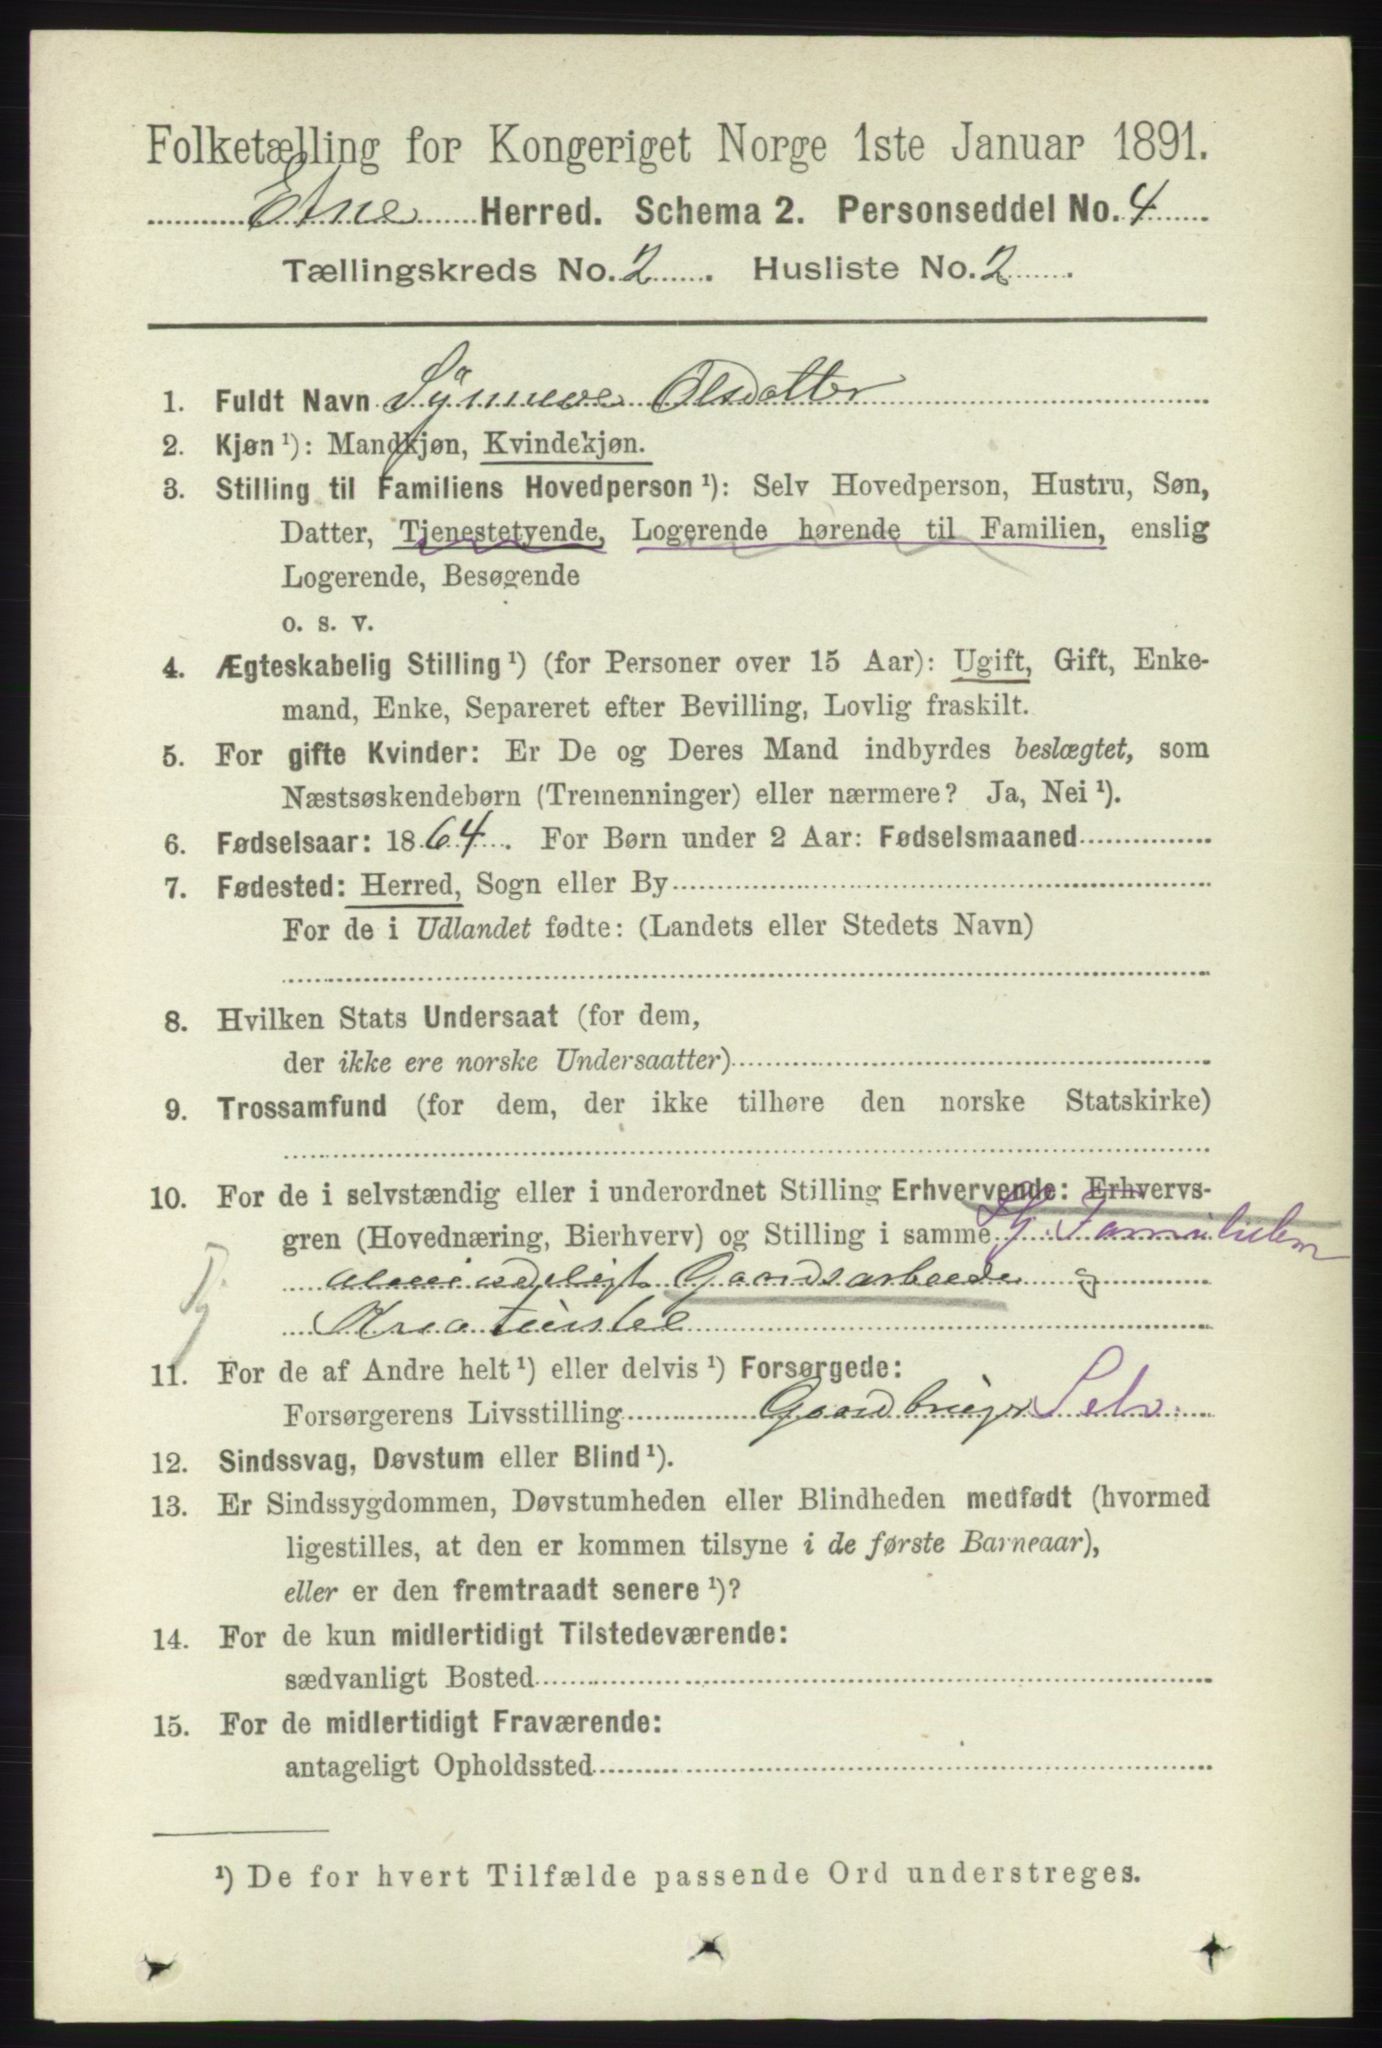 Folketælling for Kongeriget Norge 1ste Januar 1891.
Etne Herred. Schema 2. Personseddel No. 4
Tællingskreds No. 2. Husliste No. 2.
1. Fuldt Navn Synneve Olsdatter
2. Kjøn ¹): Mandkjøn, Kvindekjøn.
3. Stilling til Familiens Hovedperson ¹): Selv Hovedperson, Hustru, Søn,
Datter, Tjenestetyende, Logerende hørende til Familien, enslig
Logerende, Besøgende
o. s. v.
4. Ægteskabelig Stilling ¹) (for Personer over 15 Aar): Ugift, Gift, Enke-
mand, Enke, Separeret efter Bevilling, Lovlig fraskilt.
5. For gifte Kvinder: Er De og Deres Mand indbyrdes beslægtet, som
Næstsøskendebørn (Tremenninger) eller nærmere? Ja, Nei ¹).
6. Fødselsaar: 1864. For Børn under 2 Aar: Fødselsmaaned
7. Fødested: Herred, Sogn eller By
For de i Udlandet fødte: (Landets eller Stedets Navn)
8. Hvilken Stats Undersaat (for dem,
der ikke ere norske Undersaatter)
9. Trossamfund (for dem, der ikke tilhøre den norske Statskirke)
10. For de i selvstændig eller i underordnet Stilling Erhvervende: Erhvervs-
gren (Hovednæring, Bierhverv) og Stilling i samme Familielem
almindeligt Gaardsarbeede og
Tj. Kreaturstel
11. For de af Andre helt ¹) eller delvis ¹) Forsørgede:
Forsørgerens Livsstilling Gaardbruger Selv.
12. Sindssvag, Døvstum eller Blind ¹).
13. Er Sindssygdommen, Døvstumheden eller Blindheden medfødt (hvormed
ligestilles, at den er kommen tilsyne i de første Barneaar),
eller er den fremtraadt senere ¹)?
14. For de kun midlertidigt Tilstedeværende:
sædvanligt Bosted
15. For de midlertidigt Fraværende:
antageligt Opholdssted
¹) De for hvert Tilfælde passende Ord understreges.